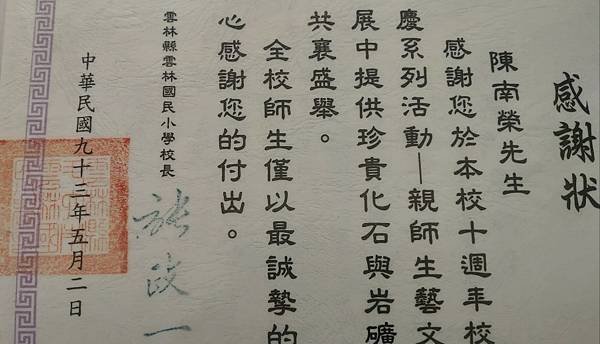 感謝狀
陳南榮先生
感謝您於本校十週年校
慶系列活動—親師生藝文
展中提供珍貴化石與岩礦
共襄盛舉。
全校師生僅以最誠摯的
心感謝您的付出。
雲林縣雲林國民小學校長
政一
中華民國九十三年五月二日